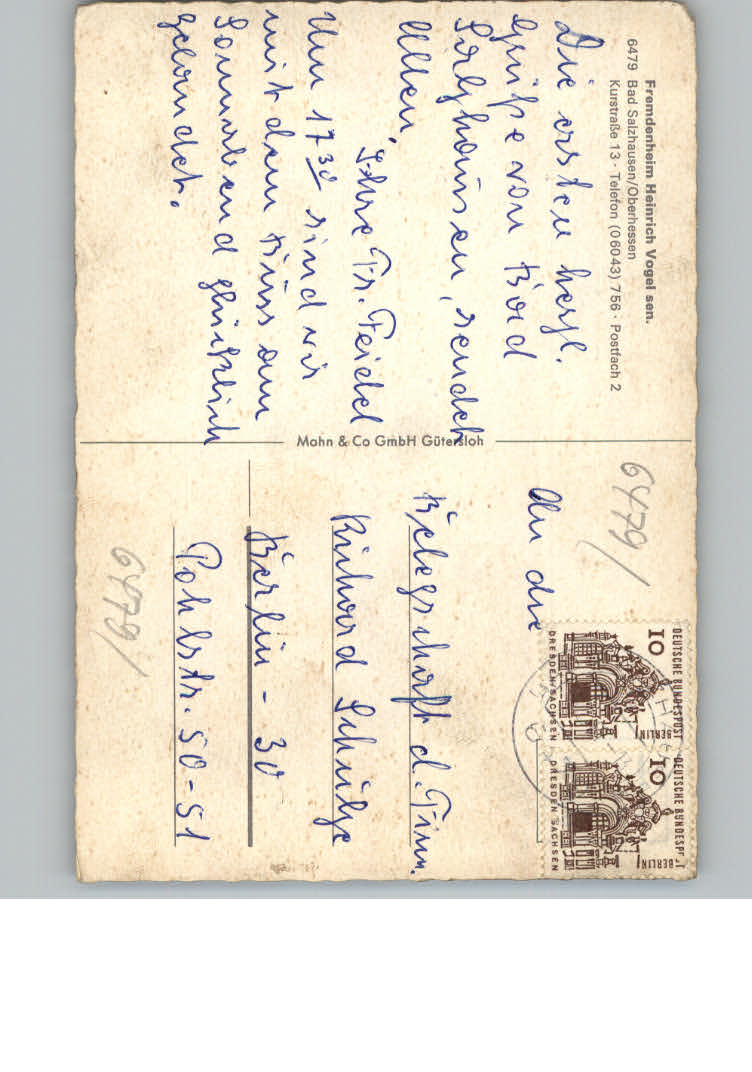 Fremdenheim Heinrich Vogel sen.
6479 Bad Salzhausen/Oberhessen
Kurstraße 13 · Telefon (06043) 756 · Postfach 2
Die ersten herzl.
Grüße von Bad
Salzhausen, sendet
Allen,
Ihre Fr. Feidel
Um 17³⁰ sind wir
mit dem Bus am
Sonnabend glücklich
gelandet.
Mohn & Co GmbH Gütersloh
6479/
An die
Belegschaft d. Firm.
Richard Schulze
Berlin - 30
Pohlstr. 50-51
6479/
DEUTSCHE BUNDESPOST
BERLIN
10
DRESDEN/SACHSEN
DEUTSCHE BUNDESPOST
BERLIN
10
DRESDEN SACHSEN